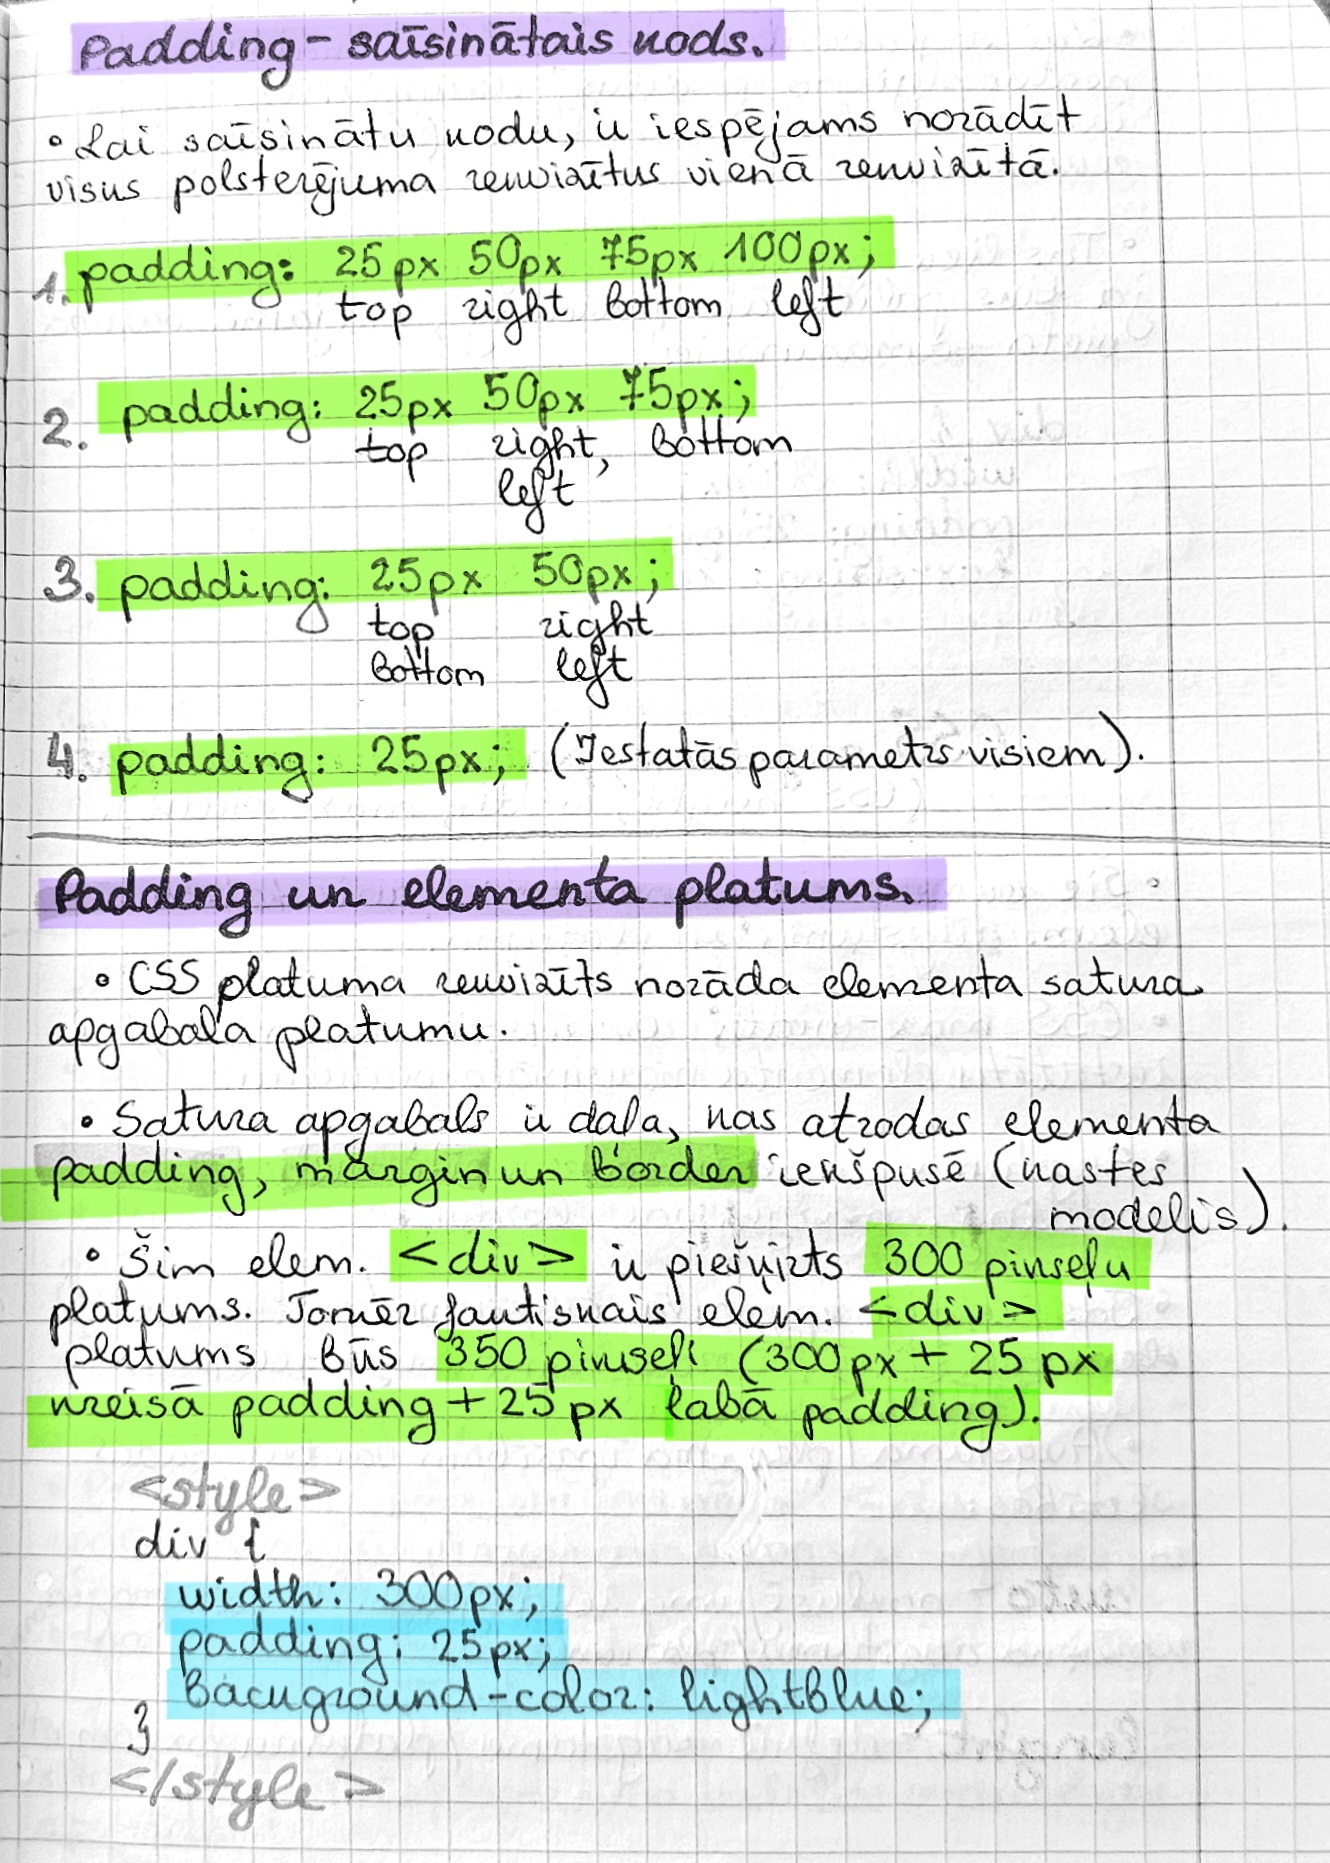 Padding - saīsinātais kods.
• Lai saīsinātu kodu, ir iespējams norādīt
visus polsterējuma rekvizītus vienā rekvizītā.
1. padding: 25px 50px 75px 100px;
top right bottom left
2. padding: 25px 50px 75px;
top right, bottom
left
3. padding: 25px 50px;
top right
bottom left
4. padding: 25px; (Iestatās parametrs visiem).
Padding un elementa platums.
• CSS platuma rekvizīts norāda elementa satura
apgabala platumu.
• Satura apgabals ir daļa, kas atrodas elementa
padding, margin un border iekšpusē (kastes
modelis).
• Šim elem. <div> ir piešķirts 300 pikseļu
platums. Tomēr faktiskais elem. <div>
platums būs 350 pikseļi (300px + 25 px
kreisā padding + 25 px labā padding).
<style>
div {
width: 300px;
padding: 25px;
background-color: lightblue;
}
</style>